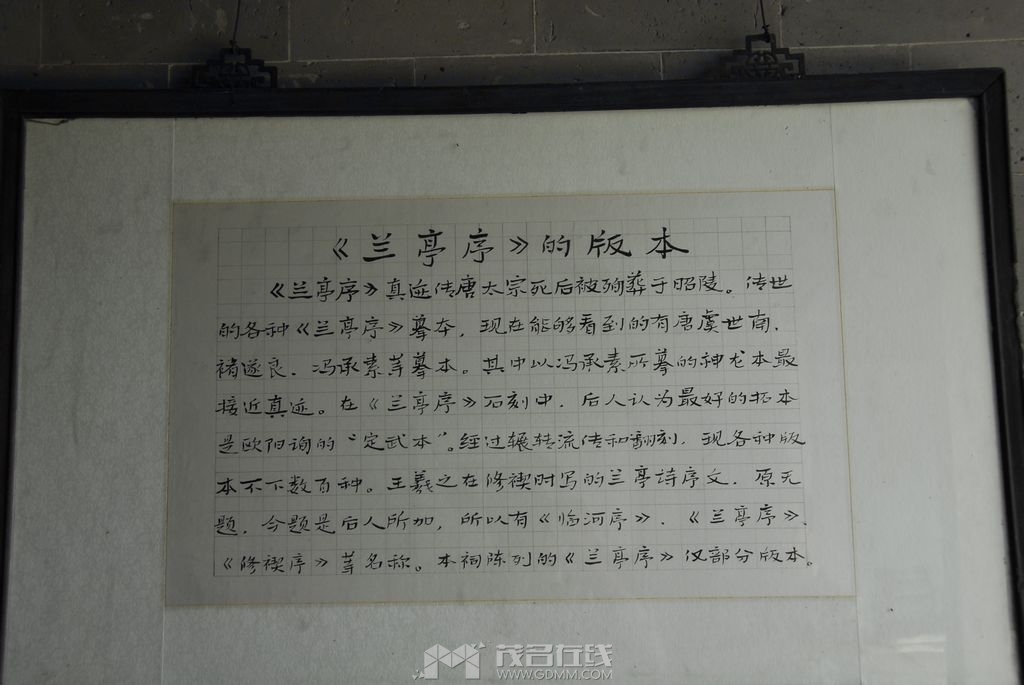 《兰亭序》的版本
《兰亭序》真迹传唐太宗死后被殉葬于昭陵。传世
的各种《兰亭序》摹本，现在能够看到的有唐虞世南、
褚遂良、冯承素等摹本。其中以冯承素所摹的神龙本最
接近真迹。在《兰亭序》石刻中，后人认为最好的拓本
是欧阳询的“定武本”。经过辗转流传和翻刻，现各种版
本不下数百种。王羲之在修禊时写的兰亭诗序文，原无
题，今题是后人所加，所以有《临河序》、《兰亭序》、
《修禊序》等名称。本祠陈列的《兰亭序》仅部分版本。
茂名在线
WWW.GDMM.COM